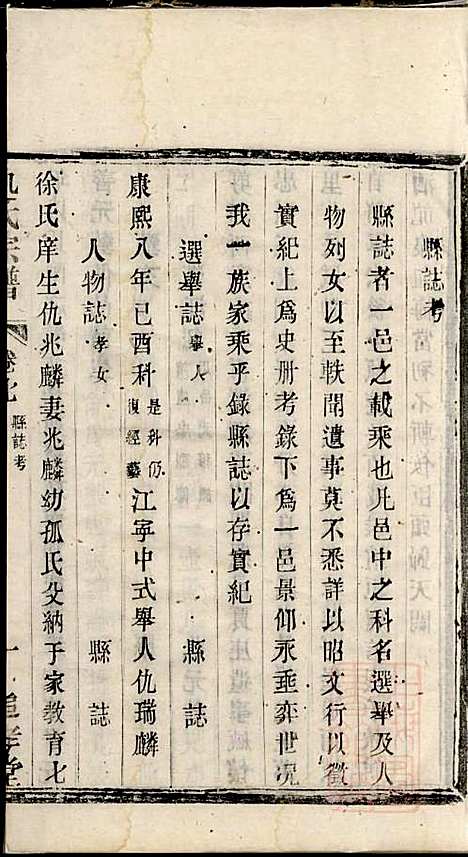 縣誌考
縣誌者一邑之載乘也凡邑中之科名選舉及人
物列女以至軼聞遺事莫不悉詳以昭文行以徵
實紀上爲史册考錄下爲一邑景仰永垂弈世況
我一族家乘乎錄縣誌以存實紀
選舉誌 舉人 縣誌
康熙八年己酉科 是科仍復經藝 江寧中式舉人仇瑞麟
人物誌 孝女 縣誌
徐氏庠生仇兆麟妻兆麟幼孤氏父納于家教育七
仇氏宗譜 卷之 縣誌考 一